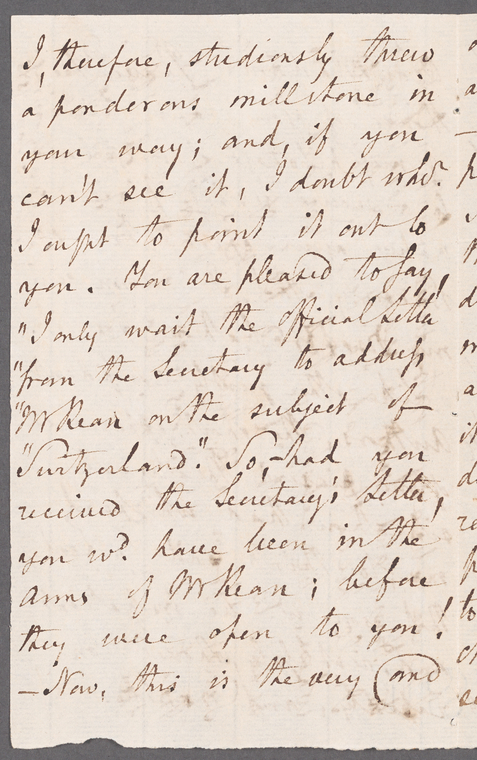 I, therefore, studiously threw
a ponderous millstone in
your way; and, if you
can't see it, I doubt whr.
I ought to point it out to
you. You are pleased to say,
"I only wait the official Letter
"from the Secretary to address
"Mr Kean on the subject of
"Switzerland". So, had you
received the Secretary's Letter,
you wd. have been in the
arms of Mr Kean; before
they were open to you!
—Now, this is the very (and